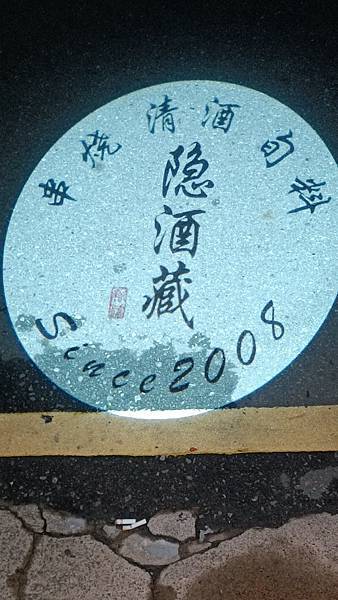 串烧 清酒 旬料
隐酒藏
Since 2008